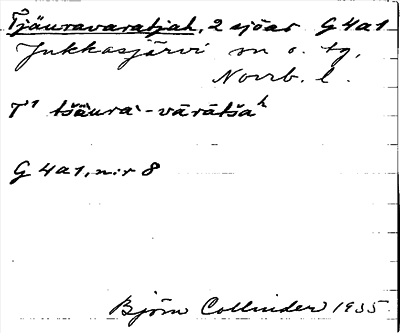 Tjäuravaratjah, 2 sjöar G 4a1
Jukkasjärvi sn o. tg,
Norrb. l.
T¹ tšäura-vāratša^h
G 4a1, n:r 8
Björn Collinder 1935